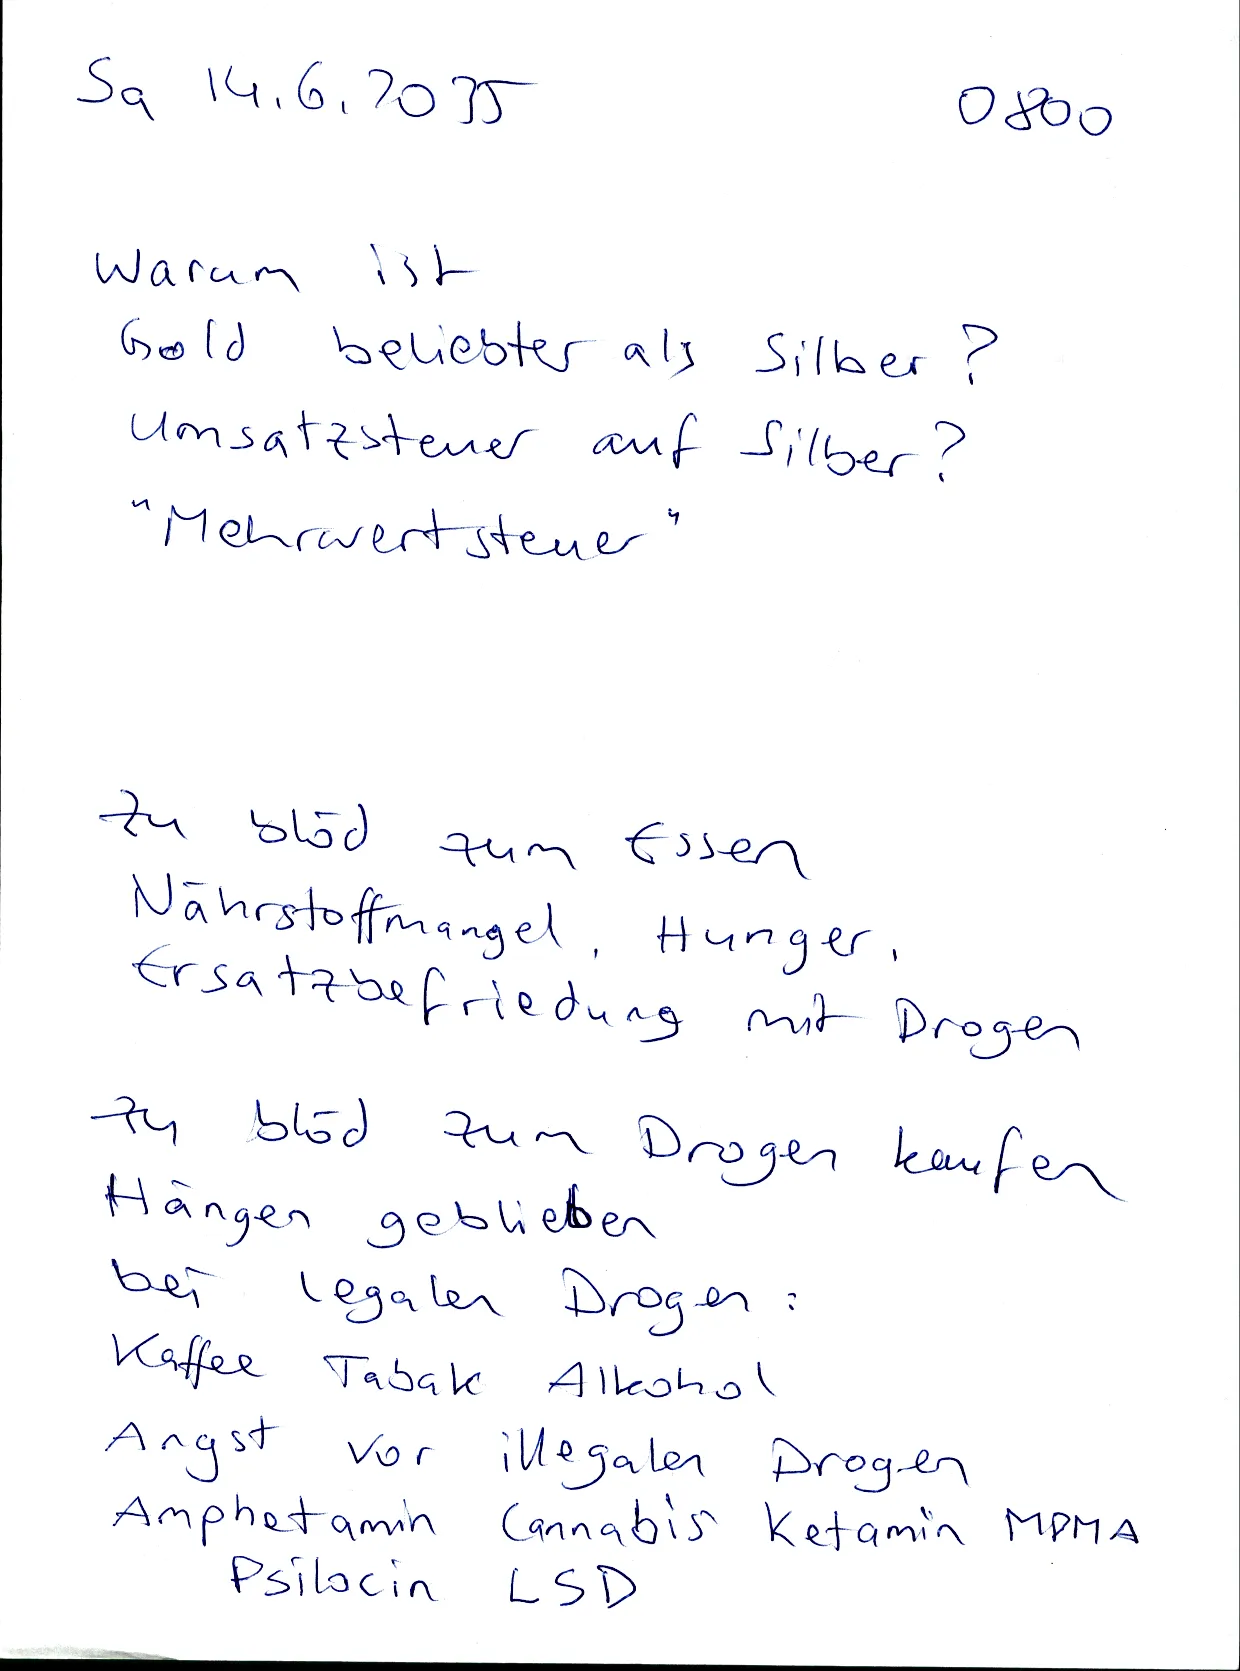 Sa 14.6.2035 0800
Warum ist
Gold beliebter als Silber?
Umsatzsteuer auf Silber?
"Mehrwertsteuer"
Zu blöd zum Essen
Nährstoffmangel, Hunger,
Ersatzbefriedung mit Drogen
Zu blöd zum Drogen kaufen
Hängen geblieben
bei legalen Drogen:
Kaffee Tabak Alkohol
Angst vor illegalen Drogen
Amphetamin Cannabis Ketamin MDMA
Psilocin LSD